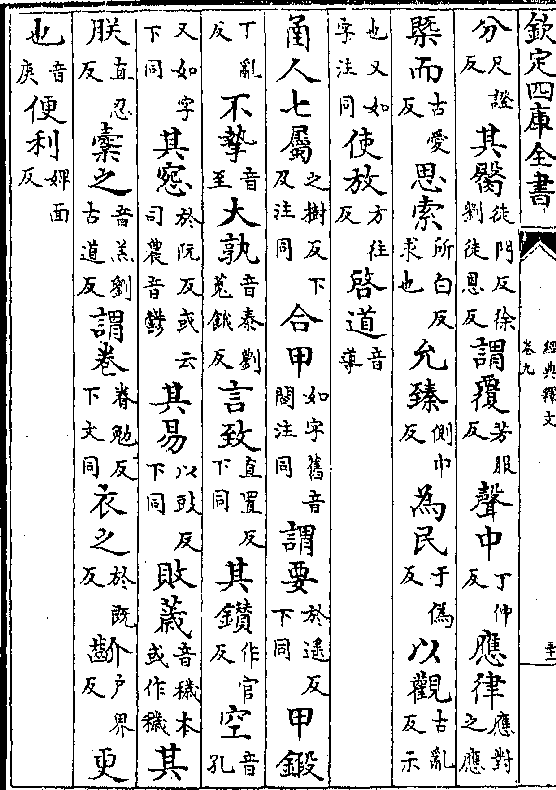 欽定四庫全書
經典釋文
卷九
分尺證反 其臋徒門反徐劉徒恩反 謂覆芳服反 聲中丁仲反 應律應對之應
槩而古愛反 思索所白反求也 允臻側巾反 為民于偽反 以觀古亂反示
也又如字注同 使放方往反 啓道音導
圅人七屬之樹反下及注同 合甲如字舊音閤注同 謂要於遥反下同 甲鍛
丁亂反 不摯音至 大孰音泰劉菟餓反 言致直置反下同 其鑽作官反 空音孔
又如字下同 其窓於阮反或云司農音鬱 其易以豉反下同 敗薉音穢本或作穢 其
朕直忍反 櫜之音羔劉古道反 謂卷眷勉反下文同 衣之於既反 齘戶界反 更
也音庚 便利婢面反